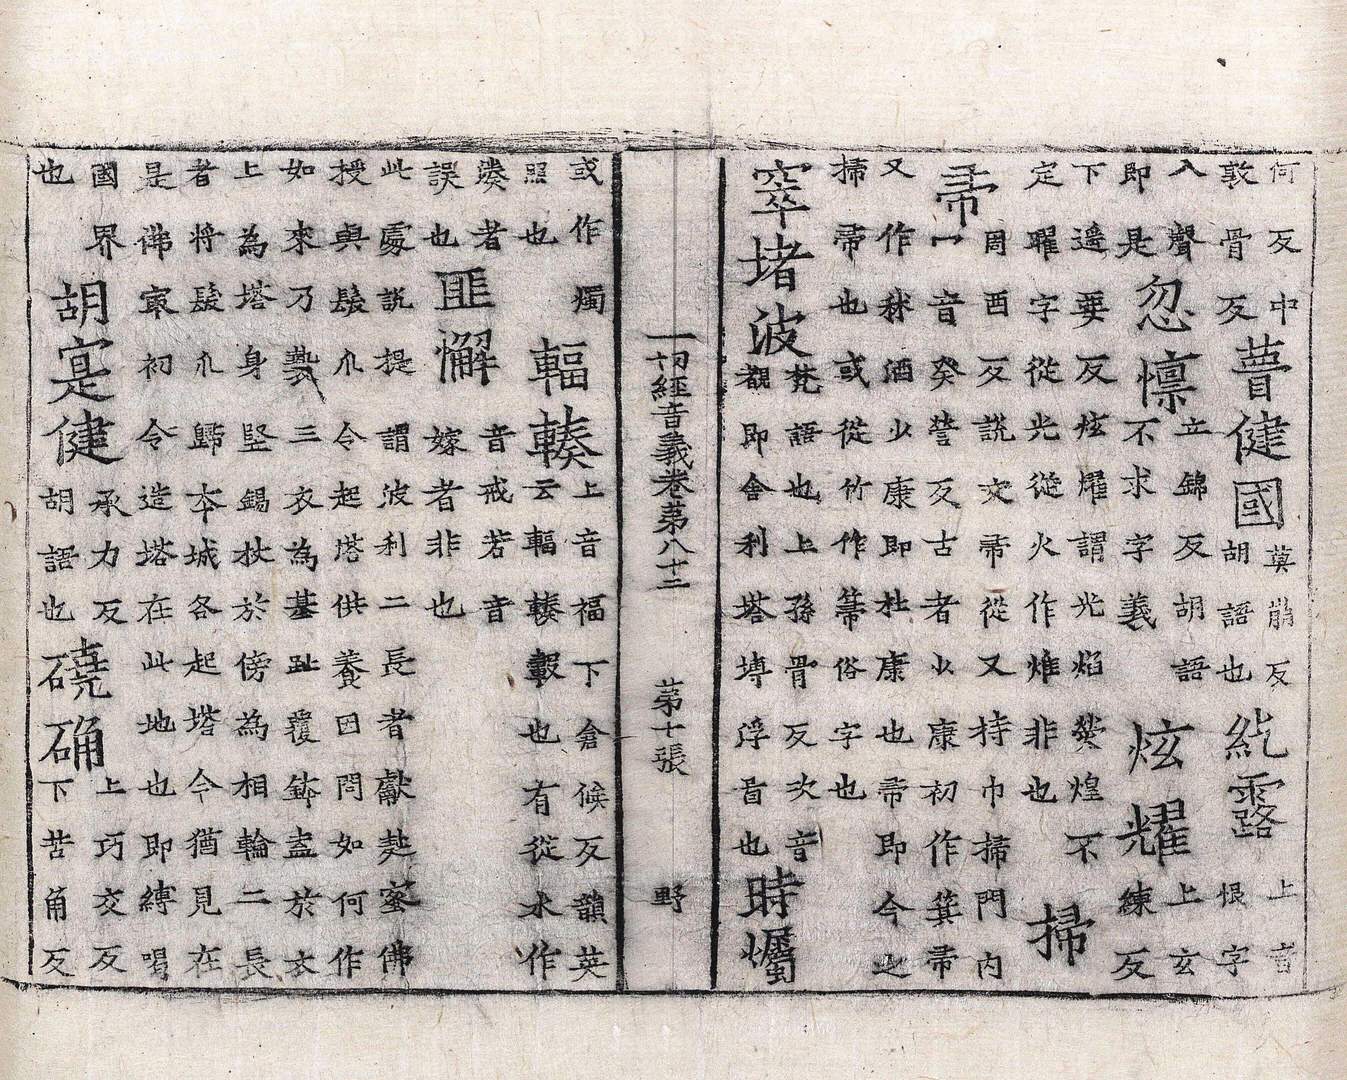 何反中敦骨反瞢健國莫崩反胡語也紇露上音恨字
入聲即是忽懍立錦反胡語不求字義炫耀上玄練反
下遥要反炫燿謂光焰熒煌不定曜字從光從火作非也掃
帚周酉反說文帚從又持巾掃門内冂音癸營反古者少康初作箕帚
又作秫酒少康即杜康也帚即今之掃帚也或從竹作箒俗字也
窣堵波梵語也上孫骨反次音覩即舍利塔塼浮啚也時爥
一切經音義卷第八十二 第十張 野
或作燭照也輻輳上音福下倉候反韻英云輻輳轂也有從水作
湊者誤也匪懈音戒若音嫁者非也
此處說提謂波利二長者獻麨蜜佛授與髮爪令起塔供養因問如何作
如來乃褺三衣為基趾覆鉢盖於衣上為塔身竪錫杖於傍為相輪二長
者將髮爪歸本城各起塔今猶見在是佛冣初令造塔在此地也即縛喝
國界也胡寔健承力反胡語也磽确上巧交反下苦角反